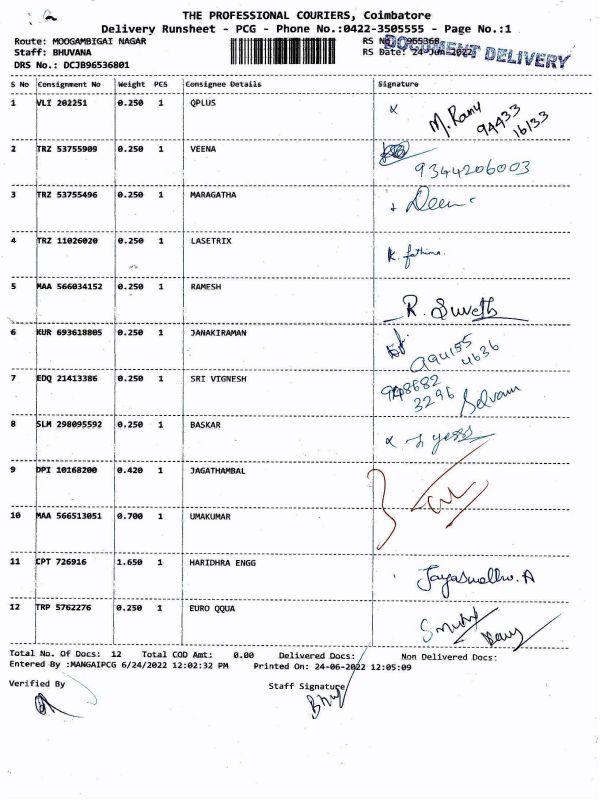 THE PROFESSIONAL COURIERS, Coimbatore
Delivery Runsheet - PCG - Phone No.:0422-3505555 - Page No.:1
Route: MOOGAMBIGAI NAGAR RS No.: 965368
DOCUMENT DELIVERY
Staff: BHUVANA RS Date: 24-Jun-2022
DRS No.: DCJB96536801
S No Consignment No Weight PCS Consignee Details Signature
1 VLI 202251 0.250 1 QPLUS M. Ramy 94433 16133
2 TRZ 53755909 0.250 1 VEENA 9344206003
3 TRZ 53755496 0.250 1 MARAGATHA
4 TRZ 11026020 0.250 1 LASETRIX K. fathima
5 MAA 566034152 0.250 1 RAMESH R. Suveth
6 KUR 693618805 0.250 1 JANAKIRAMAN 994155 4636
7 EDQ 21413386 0.250 1 SRI VIGNESH 948682 3296 Selvam
8 SLM 298095592 0.250 1 BASKAR
9 DPI 10168200 0.420 1 JAGATHAMBAL
10 MAA 566513051 0.700 1 UMAKUMAR
11 CPT 726916 1.650 1 HARIDHRA ENGG
12 TRP 5762276 0.250 1 EURO QQUA
Total No. Of Docs: 12 Total COD Amt: 0.00 Delivered Docs: Non Delivered Docs:
Entered By :MANGAIPCG 6/24/2022 12:02:32 PM Printed On: 24-06-2022 12:05:09
Verified By Staff Signature